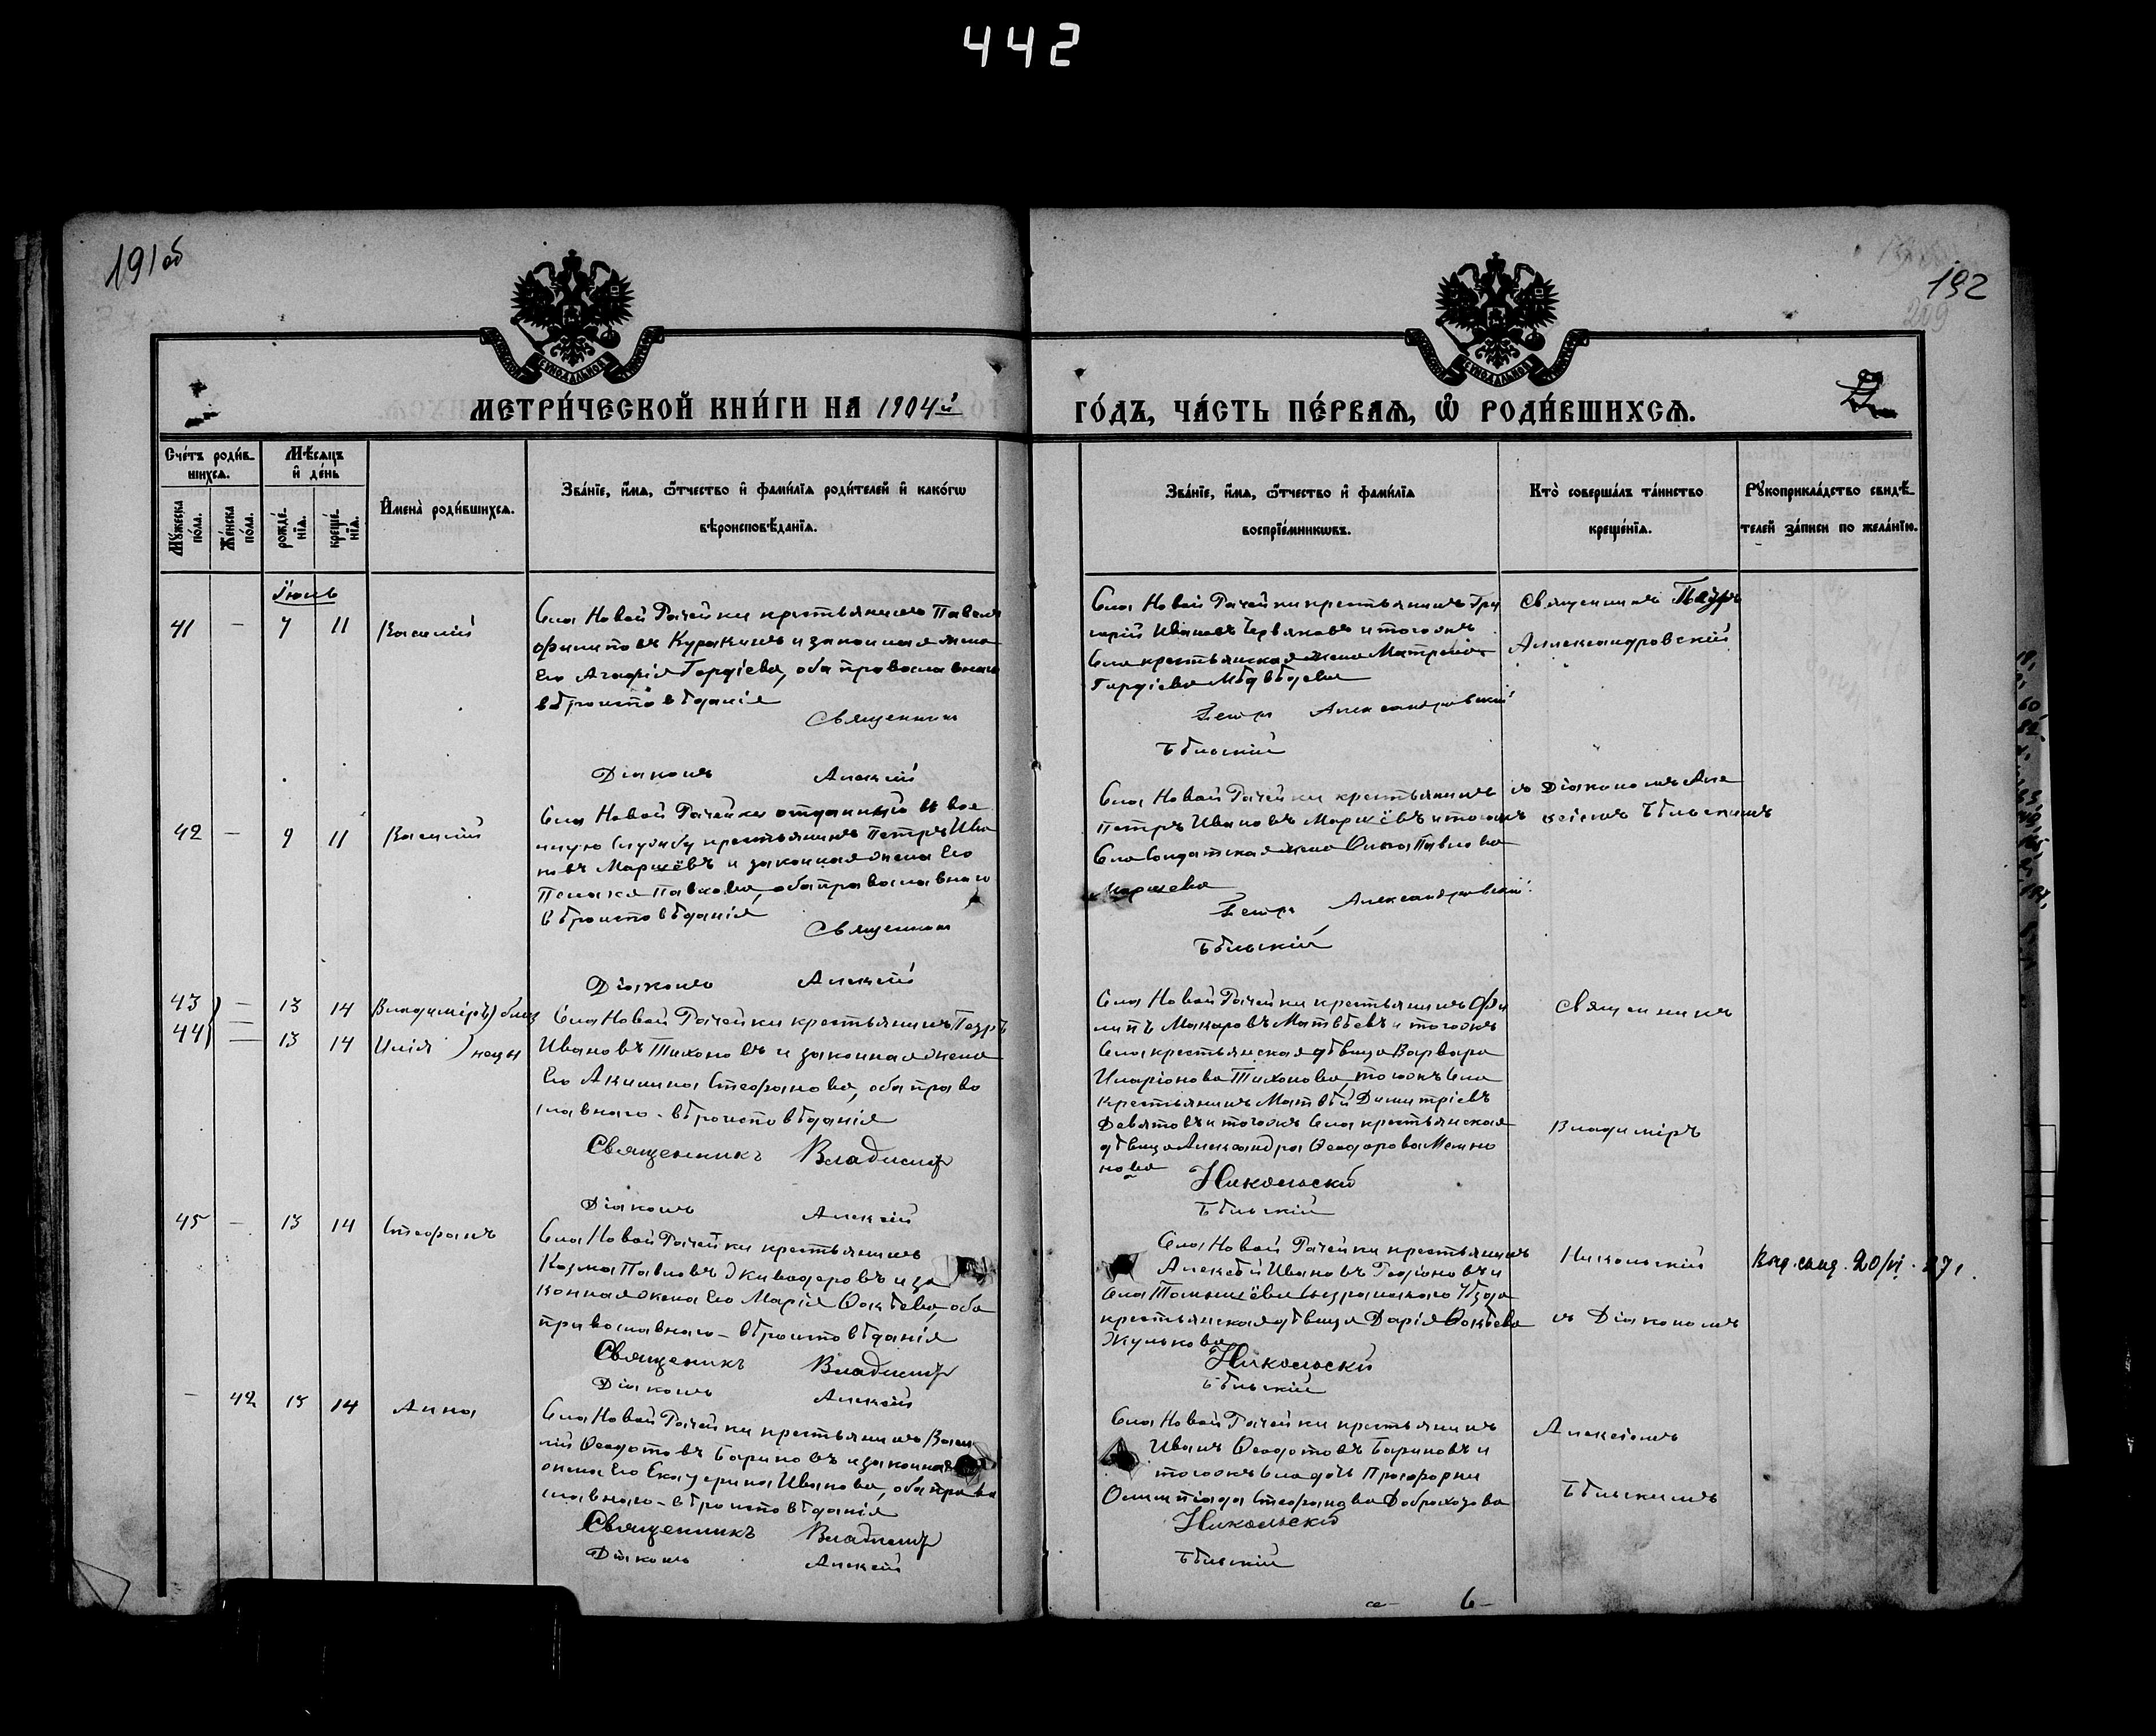 442
191 об
192
209
МЕТРИ́ЧЕСКОЙ КНИ́ГИ НА 1904й
ГО́ДЪ, ЧА́СТЬ ПЕ́РВАѦ, Ѡ҆ РОДИ́ВШИХСѦ.
Сче́тъ роди́вшихсѧ.
Мꙋ́жеска по́ла.
Же́нска по́ла.
Мѣ́сѧцъ и҆ де́нь
рожде́нїѧ.
креще́нїѧ.
И҆мена̀ роди́вшихсѧ.
Зва́нїе, и҆́мѧ, ѻ҆́тчество и҆ фами́лїѧ роди́телей и҆ како́гѡ
вѣроисповѣ́данїѧ.
Зва́нїе, и҆́мѧ, ѻ҆́тчество и҆ фами́лїѧ
воспрїе́мникѡвъ.
Кто̀ соверша́лъ та́инство
креще́нїѧ.
Рꙋкоприкла́дство свидѣ́
телей за́писи по жела́нїю.
Іюнь
41 – 7 11 Василій
Села Новой Рачейки крестьянинъ Павелъ
Филиповъ Куракинъ и законная жена
Его Агафія Гордіева, оба православнаго
вѣроисповѣданія
Священникъ
Діаконъ Алексій
Села Новой Рачейки крестьянинъ Гри
горій Ивановъ Червяковъ и тогожъ
Села крестьянская жена Матрона
Гордіева Медвѣдева
Петръ Александровскій
Бѣльскій
Священникъ Петръ
Александровскій
42 – 9 11 Василій
Села Новой Рачейки отданный въ вое
нную службу крестьянинъ Петръ Ива
новъ Маршёвъ и законная жена Его
Пелагея Павлова, оба православнаго
вѣроисповѣданія
Священникъ
Діаконъ Алексій
Села Новой Рачейки крестьянинъ
Петръ Ивановъ Маршёвъ и тогожъ
Села Солдатская жена Ольга Павлова
Маршева
Петръ Александровскій
Бѣльскій
съ Діакономъ Але
ксіемъ Бѣльскимъ
43 – 13 14 Владиміръ) близ
44 – 13 14 Илія ) нецы
Села Новой Рачейки крестьянинъ Петръ
Ивановъ Тихоновъ и законная жена
Его Акилина Стефанова, оба право
славнаго-вѣроисповѣданія
Священникъ Владиміръ
Діаконъ Алексій
Села Новой Рачейки крестьянинъ Фи
липъ Макаровъ Матвѣевъ и тогожъ
Села крестьянская дѣвица Варвара
Иларіонова Тихонова, тогожъ Села
крестьянинъ Матвѣй Димитріевъ
Девятовъ и тогожъ Села крестьянская
дѣвица Александра Ѳеодорова
Никольскій
Бѣльскій
Священникъ
Владиміръ
45 – 13 14 Стефанъ
Села Новой Рачейки крестьянинъ
Козма Павловъ и за
конная жена Его Марія Ѳоктѣева, оба
православнаго-вѣроисповѣданія
Священникъ Владиміръ
Діаконъ Алексій
Села Новой Рачейки крестьянинъ
Алексѣй Ивановъ Родіоновъ и
Села Томышёва Сызранскаго Уѣзда
крестьянская дѣвица Дарія Ѳоктѣева
Жулькова
Никольскій
Бѣльскій
Никольскій
съ Діакономъ
Выд. свид. 20/VI - 27 г.
– 42 13 14 Анна
Села Новой Рачейки крестьянинъ Васи
лій Ѳеодотовъ Бариновъ и законная
жена Его Екатерина Иванова, оба право
славнаго-вѣроисповѣданія
Священникъ Владиміръ
Діаконъ Алексій
Села Новой Рачейки крестьянинъ
Иванъ Ѳеодотовъ Бариновъ и
тогожъ Села дочь Просфорни
Олимпіада Стефанова Доброхотова
Никольскій
Бѣльскій
Алексіемъ
Бѣльскимъ
6-